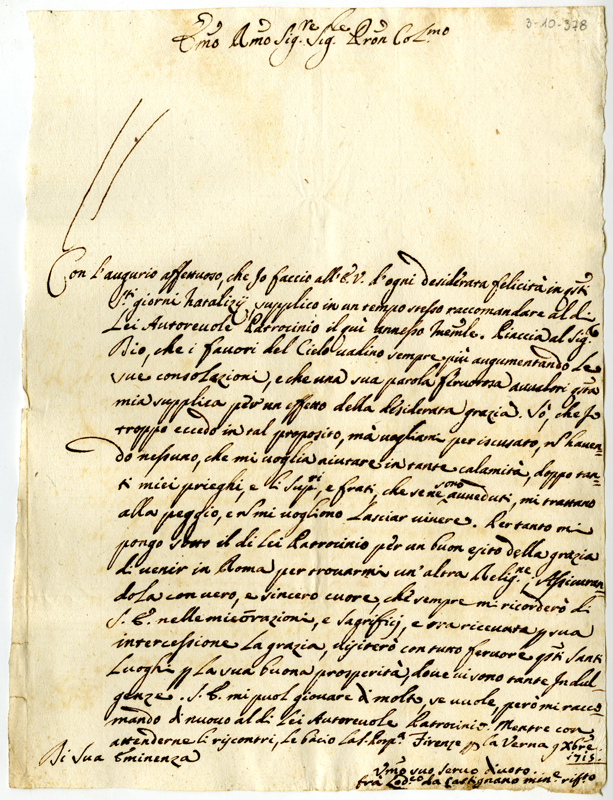 3-10-378
Emo Rmo Sig.re Sig.re Pron Col.mo
Con l'augurio affettuoso, che Io faccio all'E.V. d'ogni desiderata felicità in qsti
Sti giorni natalizij, supplico in un tempo stesso raccomandare al di
Lei Autorevole Patrocinio il qui annesso Memle. Piaccia al Sigre
Dio, che i favori del Cielo vadino sempre più augumentando le
sue consolazioni, e che una sua parola fervorosa avvalori qsta
mia supplica per un effetto della desiderata grazia. Sò, che Io
troppo eccedo in tal proposito, mà vogliami per iscusato, nò haven=
do nessuno, che mi voglia aiutare in tante calamità, doppo tan=
ti miei prieghi, e li Supri, e frati, che se ne sono avveduti, mi trattano
alla peggio, e nò mi vogliono lasciar vivere. Pertanto mi
pongo sotto il di Lei Patrocinio per un buon esito della grazia
di venir in Roma per trovarmi un'altra Religne; Assicuran=
dola con vero, e sincero cuore, che sempre mi ricorderò di
S. E. nelle mie orazioni, e sagrifici, e ora ricevuta p sua
intercessione la grazia, visiterò con tutto fervore qsti Santi
Luoghi p la sua buona prosperità, dove vi sono tante Indul=
genze. S. E. mi puol giovare di molto, se vuole, però mi racco=
mando di nuovo al di Lei Autorevole Patrocinio. Mentre con
attenderne li riscontri, le bacio la S. Porpa. Firenze p la Verna 9 Xbre
1715.
Di Sua
Eminenza
Umo suo servo divoto
frà Lodco da Castignano mine rifto